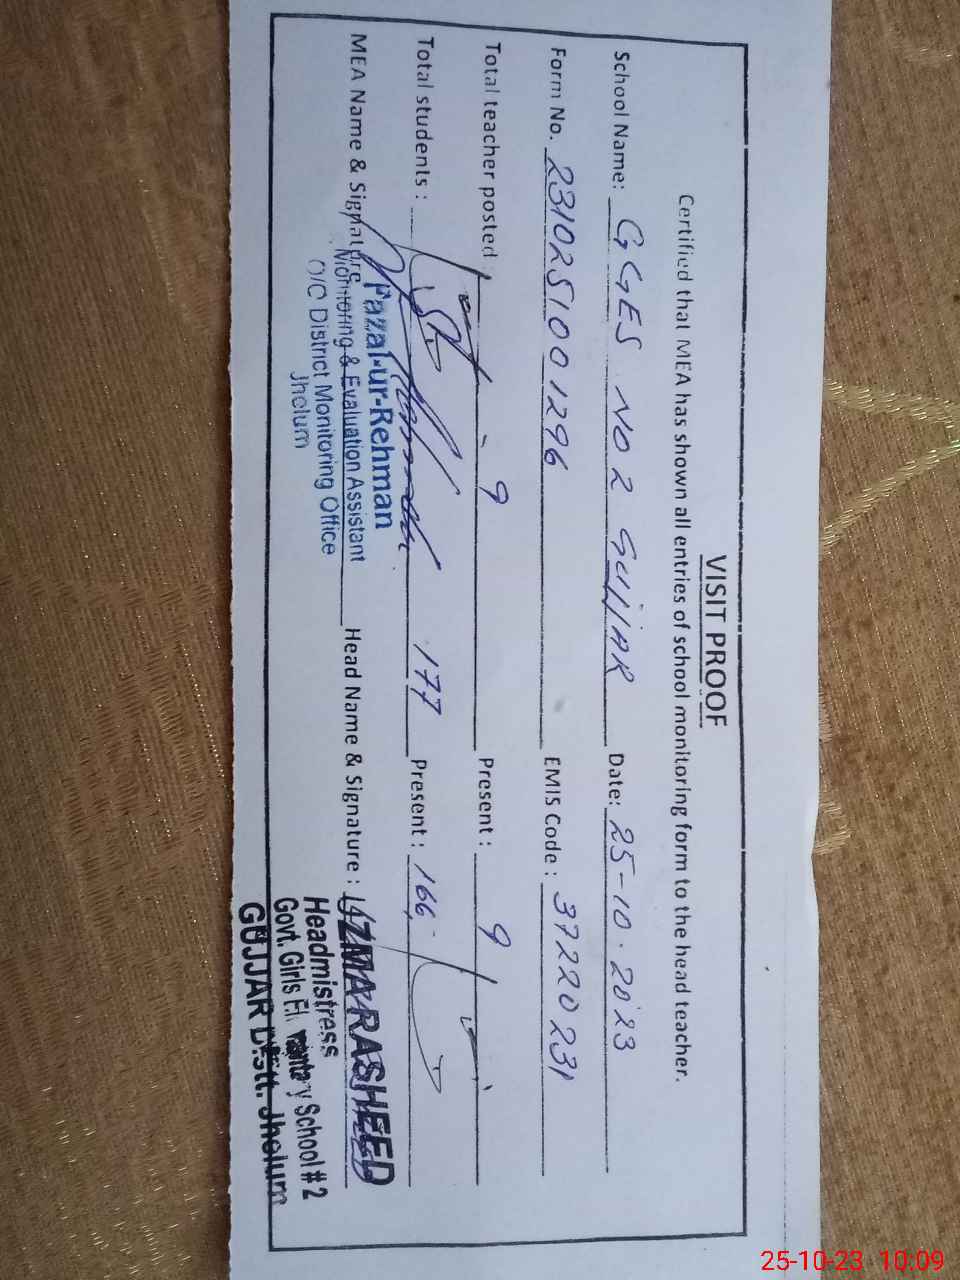 VISIT PROOF
Certified that MEA has shown all entries of school monitoring form to the head teacher.
School Name: GGES NO 2 GUJJAR Date: 25-10-2023
Form No. 231025100 1296 EMIS Code: 37220231
Total teacher posted 9 Present: 9
Total students: 177 Present: 166
MEA Name & Signature Head Name & Signature:
Fazal-ur-Rehman
Monitoring & Evaluation Assistant
O/C District Monitoring Office
Jhelum
UZMA RASHEED
Headmistress
Govt. Girls Elementary School # 2
GUJJAR Distt. Jhelum
25-10-23 10:09